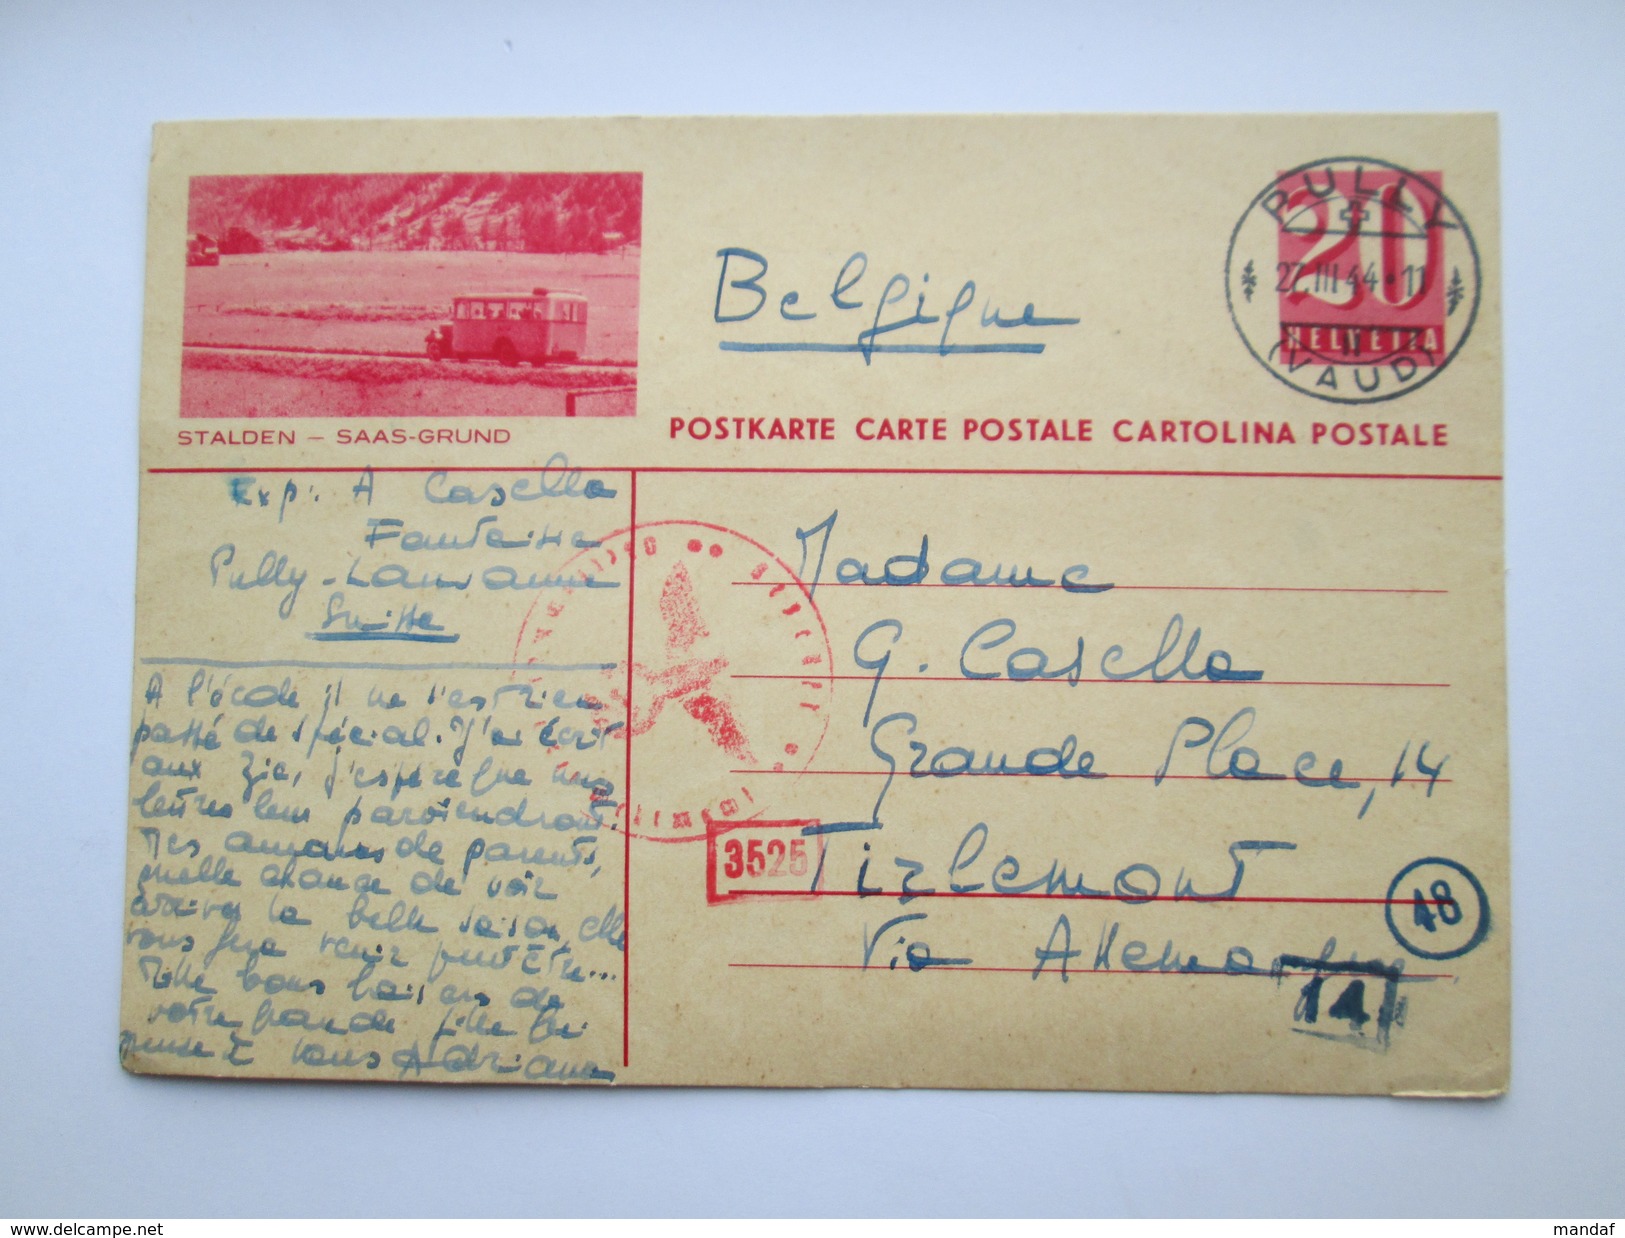 PULLY
27.III.44•11
(VAUD)
20
HELVETIA
Belgique
STALDEN – SAAS-GRUND
POSTKARTE CARTE POSTALE CARTOLINA POSTALE
Exp: A Casella
Fontaine
Pully-Lausanne
Suisse
Madame
G. Casella
Grande Place, 14
Tirlemont
Via Allemagne
3525
48
14
A l'école il ne s'est rien
passé de spécial. J'ai écrit
aux Zie, j'espère que mes
lettres leur parviendront.
Mes amours de parents,
quelle chance de voir
arriver la belle saison, elle
vous fera venir peut être...
Mille bons baisers de
votre grande fille qui
pense à vous Adriana
delcampe.net
mandaf